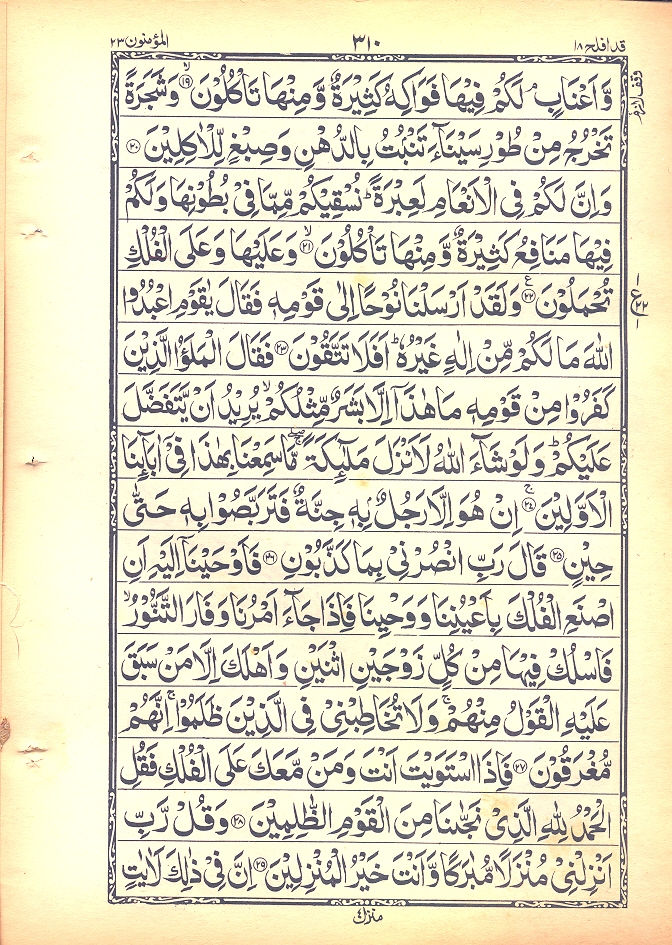 قد افلح ١٨ ٣١٠ المؤمنون ٢٣
وقف لازم
وَّاَعْنَابٍ ۘ لَكُمْ فِيْهَا فَوَاكِهُ كَثِيْرَةٌ وَّمِنْهَا تَاْكُلُوْنَ ۙ﴿١٩﴾ وَشَجَرَةً
تَخْرُجُ مِنْ طُوْرِ سَيْنَآءَ تَنْۢبُتُ بِالدُّهْنِ وَصِبْغٍ لِّلْاٰكِلِيْنَ ﴿٢٠﴾
وَاِنَّ لَكُمْ فِى الْاَنْعَامِ لَعِبْرَةً ؕ نُسْقِيْكُمْ مِّمَّا فِىْ بُطُوْنِهَا وَلَكُمْ
فِيْهَا مَنَافِعُ كَثِيْرَةٌ وَّمِنْهَا تَاْكُلُوْنَ ۙ﴿٢١﴾ وَعَلَيْهَا وَعَلَى الْفُلْكِ
تُحْمَلُوْنَ ﴿٢٢﴾ ع وَلَقَدْ اَرْسَلْنَا نُوْحًا اِلٰى قَوْمِهٖ فَقَالَ يٰقَوْمِ اعْبُدُوا
اللّٰهَ مَا لَكُمْ مِّنْ اِلٰهٍ غَيْرُهٗ ؕ اَفَلَا تَتَّقُوْنَ ﴿٢٣﴾ فَقَالَ الْمَلَؤُا الَّذِيْنَ
كَفَرُوْا مِنْ قَوْمِهٖ مَا هٰذَاۤ اِلَّا بَشَرٌ مِّثْلُكُمْ ۙ يُرِيْدُ اَنْ يَّتَفَضَّلَ
عَلَيْكُمْ ؕ وَلَوْ شَآءَ اللّٰهُ لَاَنْزَلَ مَلٰٓئِكَةً ۖۚ مَّا سَمِعْنَا بِهٰذَا فِىْۤ اٰبَآئِنَا
الْاَوَّلِيْنَ ۚ﴿٢٤﴾ اِنْ هُوَ اِلَّا رَجُلٌۢ بِهٖ جِنَّةٌ فَتَرَبَّصُوْا بِهٖ حَتّٰى
حِيْنٍ ﴿٢٥﴾ قَالَ رَبِّ انْصُرْنِىْ بِمَا كَذَّبُوْنِ ﴿٢٦﴾ فَاَوْحَيْنَاۤ اِلَيْهِ اَنِ
اصْنَعِ الْفُلْكَ بِاَعْيُنِنَا وَوَحْيِنَا فَاِذَا جَآءَ اَمْرُنَا وَفَارَ التَّنُّوْرُ ۙ
فَاسْلُكْ فِيْهَا مِنْ كُلٍّ زَوْجَيْنِ اثْنَيْنِ وَاَهْلَكَ اِلَّا مَنْ سَبَقَ
عَلَيْهِ الْقَوْلُ مِنْهُمْ ۚ وَلَا تُخَاطِبْنِىْ فِى الَّذِيْنَ ظَلَمُوْا ۚ اِنَّهُمْ
مُّغْرَقُوْنَ ﴿٢٧﴾ فَاِذَا اسْتَوَيْتَ اَنْتَ وَمَنْ مَّعَكَ عَلَى الْفُلْكِ فَقُلِ
الْحَمْدُ لِلّٰهِ الَّذِىْ نَجّٰىنَا مِنَ الْقَوْمِ الظّٰلِمِيْنَ ﴿٢٨﴾ وَقُلْ رَّبِّ
اَنْزِلْنِىْ مُنْزَلًا مُّبٰرَكًا وَّاَنْتَ خَيْرُ الْمُنْزِلِيْنَ ﴿٢٩﴾ اِنَّ فِىْ ذٰلِكَ لَاٰيٰتٍ
منزل ٤